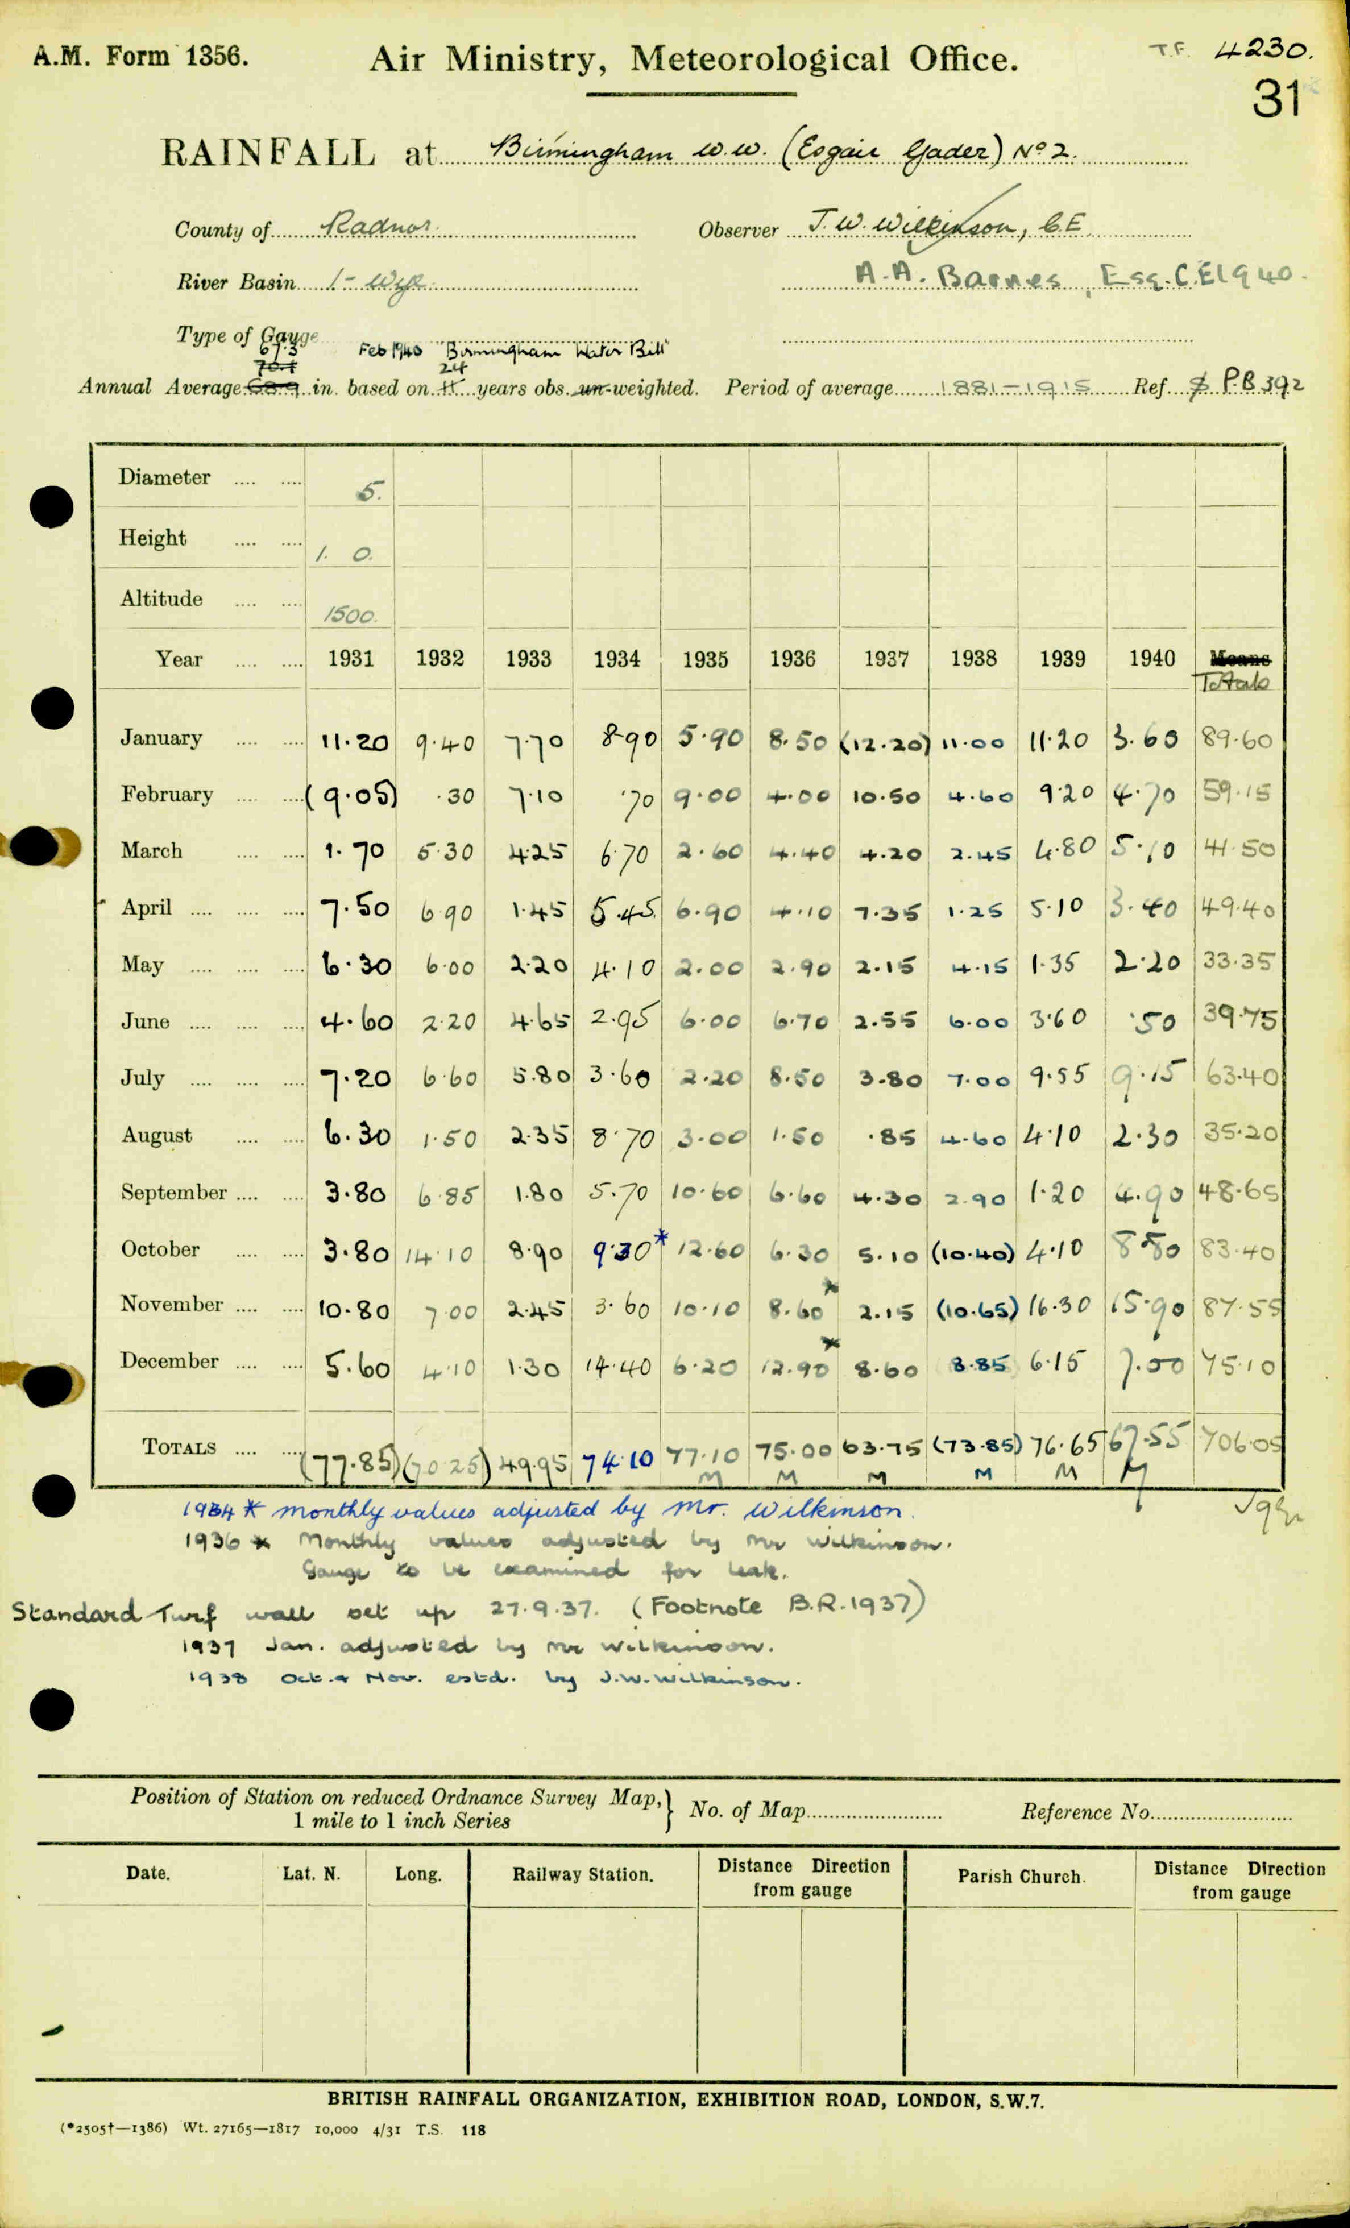 A.M. Form 1356. Air Ministry, Meteorological Office. T.F. 4230.
31
RAINFALL at Birmingham W.W. (Esgair Gader) No 2.
County of Radnor. Observer J.W. Wilkinson, C.E.
River Basin 1 - Wye. A.A. Barnes, Esq. C.E 1940.
Type of Gauge
67.3 Feb 1940 "Birmingham Water Bill"
70.1 24
Annual Average 68.9 in. based on 11 years obs. un-weighted. Period of average 1881-1915 Ref. P.B 392
Diameter .... .... 5.
Height .... .... 1. 0.
Altitude .... .... 1500.
Year .... .... 1931 1932 1933 1934 1935 1936 1937 1938 1939 1940 Means
Totals
January .... .... 11.20 9.40 7.70 8.90 5.90 8.50 (12.20) 11.00 11.20 3.60 89.60
February .... .... (9.05) .30 7.10 .70 9.00 4.00 10.50 4.60 9.20 4.70 59.15
March .... .... 1.70 5.30 4.25 6.70 2.60 4.40 4.20 2.45 4.80 5.10 41.50
April .... .... .... 7.50 6.90 1.45 5.45 6.90 4.10 7.35 1.25 5.10 3.40 49.40
May .... .... .... 6.30 6.00 2.20 4.10 2.00 2.90 2.15 4.15 1.35 2.20 33.35
June .... .... .... 4.60 2.20 4.65 2.95 6.00 6.70 2.55 6.00 3.60 .50 39.75
July .... .... .... 7.20 6.60 5.80 3.60 2.20 8.50 3.80 7.00 9.55 9.15 63.40
August .... .... 6.30 1.50 2.35 8.70 3.00 1.50 .85 4.60 4.10 2.30 35.20
September .... .... 3.80 6.85 1.80 5.70 10.60 6.60 4.30 2.90 1.20 4.90 48.65
October .... .... 3.80 14.10 8.90 9.30* 12.60 6.30 5.10 (10.40) 4.10 8.80 83.40
November .... .... 10.80 7.00 2.45 3.60 10.10 8.60* 2.15 (10.65) 16.30 15.90 87.55
December .... .... 5.60 4.10 1.30 14.40 6.20 12.90* 8.60 8.85 6.15 7.00 75.10
TOTALS .... .... (77.85) (70.25) 49.95 74.10 77.10 75.00 63.75 (73.85) 76.65 67.55 706.05
M M M M M M
1934 * monthly values adjusted by Mr. Wilkinson.
1936 * Monthly values adjusted by Mr Wilkinson.
Gauge to be examined for leak.
Standard Turf wall set up 27.9.37. (Footnote B.R. 1937)
1937 Jan. adjusted by Mr Wilkinson.
1938 Oct. & Nov. estd. by J.W. Wilkinson.
Position of Station on reduced Ordnance Survey Map, } No. of Map Reference No.
1 mile to 1 inch Series
Date. Lat. N. Long. Railway Station. Distance Direction Parish Church. Distance Direction
from gauge from gauge
BRITISH RAINFALL ORGANIZATION, EXHIBITION ROAD, LONDON, S.W.7.
(*2505†—1386) Wt. 27165—1817 10,000 4/31 T.S. 118